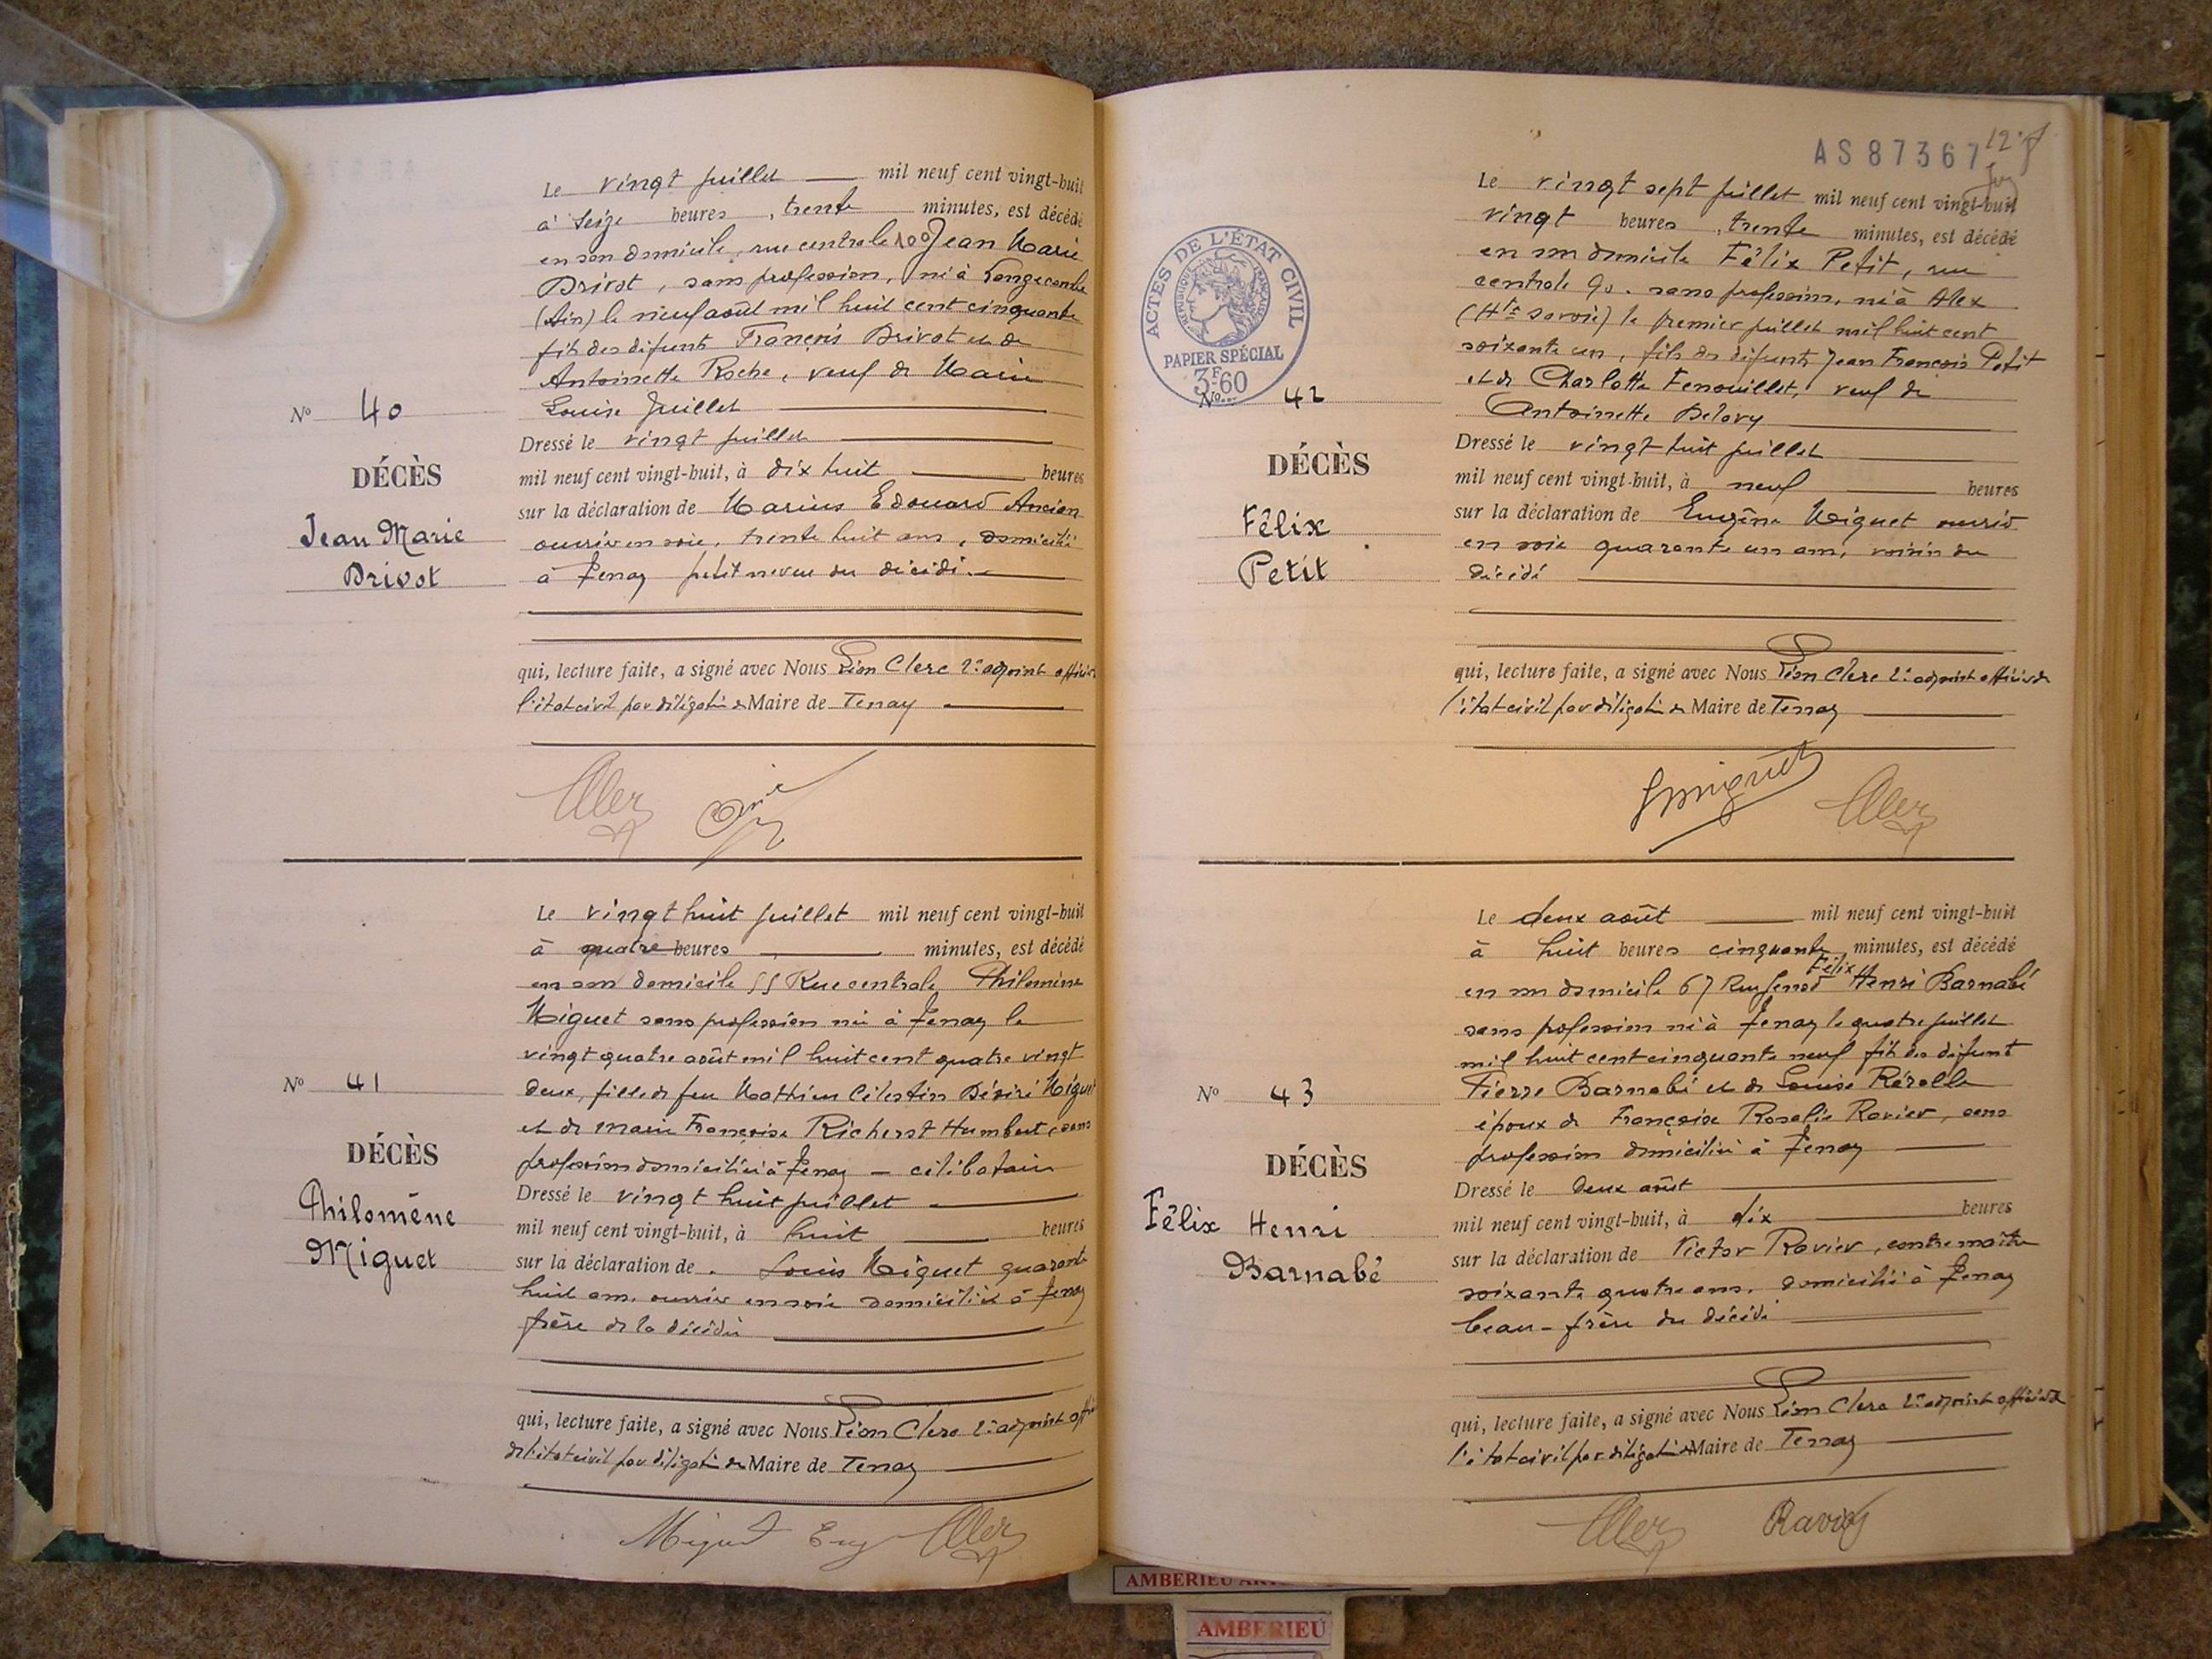 Le vingt juillet mil neuf cent vingt-huit
à seize heures, trente minutes, est décédé
en son domicile, rue centrale 100 Jean Marie
Drivot, sans profession, né à Longecombe
(Ain) le neuf août mil huit cent cinquante
fils des défunts François Drivot et de
Antoinette Roche, veuf de Marie
Louise Juillet
Nº 40
DÉCÈS
Jean Marie
Drivot
Dressé le vingt juillet
mil neuf cent vingt-huit, à dix huit heures
sur la déclaration de Marius Edouard Ancian
ouvrier en soie, trente huit ans, domicilié
à Tenay petit neveu du décédé.
qui, lecture faite, a signé avec Nous Léon Clerc 2e adjoint officier
l'état civil par délégation du Maire de Tenay
Le vingt huit juillet mil neuf cent vingt-huit
à quatre heures minutes, est décédé
en son domicile 55 Rue centrale Philomène
Miguet sans profession née à Tenay le
vingt quatre août mil huit cent quatre vingt
deux, fille de feu Mathieu Célestin Désiré Miguet
et de Marie Françoise Richerot Humbert, sans
profession domiciliée à Tenay – célibataire
Nº 41
DÉCÈS
Philomène
Miguet
Dressé le vingt huit juillet
mil neuf cent vingt-huit, à huit heures
sur la déclaration de Louis Miguet quarante
huit ans, ouvrier en soie domicilié à Tenay
frère de la décédée
qui, lecture faite, a signé avec Nous Léon Clerc 2e adjoint offi
de l'état civil par délégation du Maire de Tenay
Miguet Eug Clerc
AS 87367
ACTES DE L'ÉTAT CIVIL
RÉPUBLIQUE FRANÇAISE
PAPIER SPÉCIAL
3F60
Le vingt sept juillet mil neuf cent vingt-huit
vingt heures, trente minutes, est décédé
en son domicile Félix Petit, rue
centrale 90. sans profession, né à Alex
(Hte Savoie) le premier juillet mil huit cent
soixante un, fils des défunts Jean François Petit
et de Charlotte Fenouillet, veuf de
Antoinette Delovy
Nº 42
DÉCÈS
Félix
Petit
Dressé le vingt huit juillet
mil neuf cent vingt-huit, à neuf heures
sur la déclaration de Eugène Miguet ouvrier
en soie quarante un ans, voisin du
décédé
qui, lecture faite, a signé avec Nous Léon Clerc 2e adjoint officier de
l'état civil par délégation du Maire de Tenay
Miguet Clerc
Le deux août mil neuf cent vingt-huit
à huit heures cinquante minutes, est décédé
en son domicile 67 Rue Jenod Félix Henri Barnabé
sans profession né à Tenay le quatre juillet
mil huit cent cinquante neuf fils des défunt
Pierre Barnabé et de Louise Rérolle
époux de Françoise Rosalie Ravier, sans
profession domiciliée à Tenay
Nº 43
DÉCÈS
Félix Henri
Barnabé
Dressé le deux août
mil neuf cent vingt-huit, à dix heures
sur la déclaration de Victor Ravier, contremaître
soixante quatre ans, domicilié à Tenay
beau-frère du décédé
qui, lecture faite, a signé avec Nous Léon Clerc 2e adjoint officier de
l'état civil par délégation du Maire de Tenay
Clerc Ravier
AMBERIEU
AMBERIEU